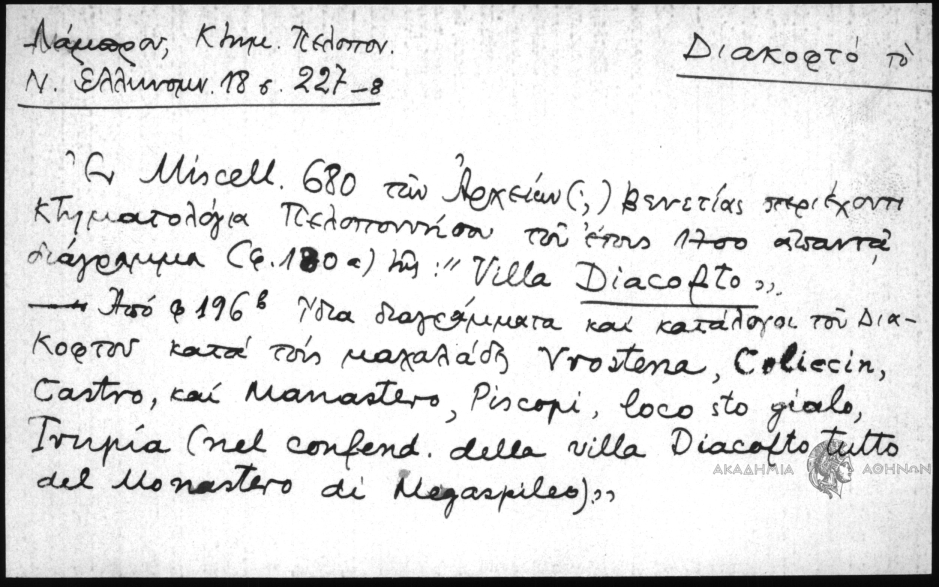 Λάμπρου, Κτημ. Πελοπον.
Ν. Ελληνομν. 18 σ. 227-8
Διακοφτό τὸ
Ἐν Miscell. 680 τῶν Ἀρχείων (;) Βενετίας περιέχοντι
κτηματολόγια Πελοποννήσου τοῦ ἔτους 1700 ἀπαντᾷ
διάγραμμα (φ. 180 α) τῆς : " Villa Diacofto ",
— Ἀπό φ 196 β ἴδια διαγράμματα καί κατάλογοι τοῦ Δια-
κοφτοῦ κατά τούς μαχαλάδες Vrostena, Coliccin,
Castro, καί Manastero, Piscopi, loco sto gialo,
Trupia (nel confend. della villa Diacofto tutto
del Monastero di Megaspileo) "
ΑΚΑΔΗΜΙΑ ΑΘΗΝΩΝ